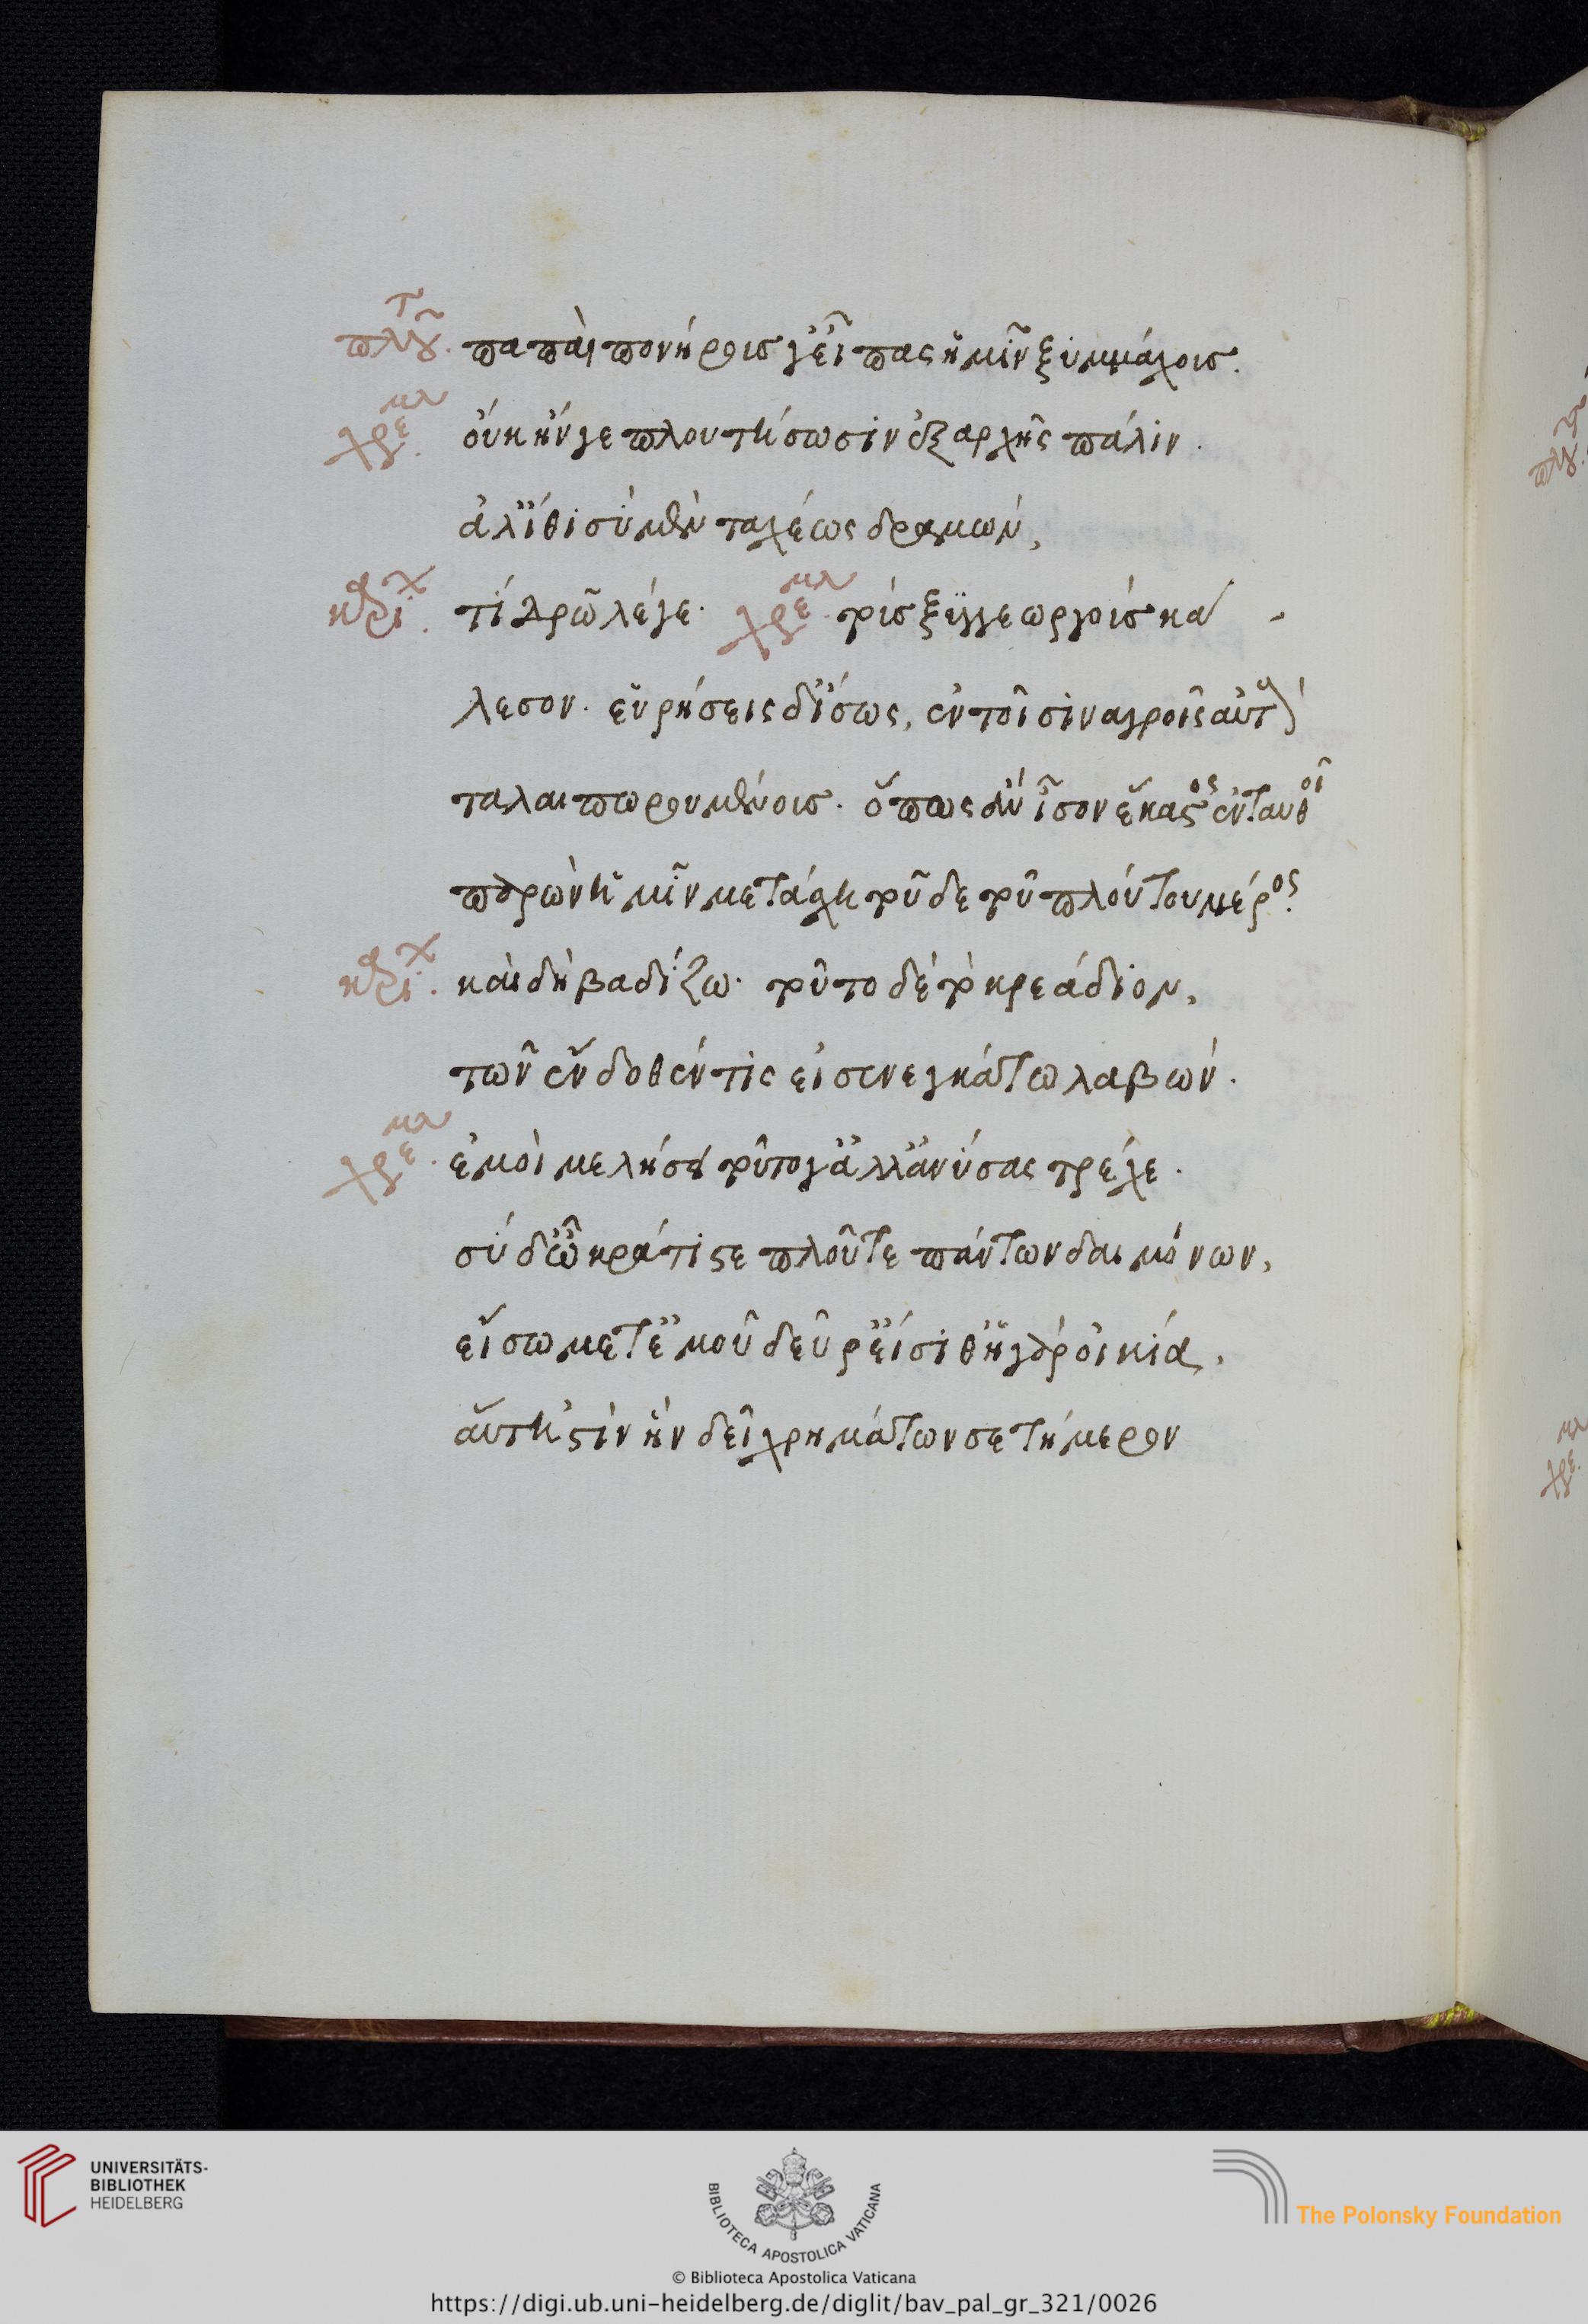 πλου^τ. παπαὶ πονήρους γ' εἶπας ἡμῖν ξυμμάχους.
χρε^μλ. οὐκ ἤν γε πλουτήσωσιν ἐξ αρχῆς πάλιν.
ἀλλ' ἴθι σὺ μὲν ταχέως δραμών,
καρί^χ. τί δρῶ λέγε. χρε^μλ. τοὺς ξυγγεωργούς κά-
λεσον. εὑρήσεις δ' ἴσως, ἐν τοῖσιν αγροῖς αὐτοὺς
ταλαιπωρουμένους. ὅπως ἂν ἴσον ἕκαστος ἐνταυθοῖ
παρὼν ἡμῖν μετάσχη τοῦδε τοῦ πλούτου μέρος.
καρί^χ. καὶ δὴ βαδίζω. τοῦτο δὲ τὸ κρεάδιον,
τῶν ἔνδοθέν τις εἰσενεγκάτω λαβών.
χρε^μλ. ἐμοὶ μελήσει τοῦτο γ' ἀλλ' ἀνύσας τρέχε.
σύ δ' ὦ κράτιστε πλοῦτε πάντων δαιμόνων,
εἴσω μετ' ἐμοῦ δεῦρ' εἴσιθ' ἡ γὰρ οἰκία,
αὕτη ἐστὶν ἣν δεῖ χρημάτων σε τήμερον
UNIVERSITÄTS-
BIBLIOTHEK
HEIDELBERG
BIBLIOTECA APOSTOLICA VATICANA
The Polonsky Foundation
© Biblioteca Apostolica Vaticana
https://digi.ub.uni-heidelberg.de/diglit/bav_pal_gr_321/0026